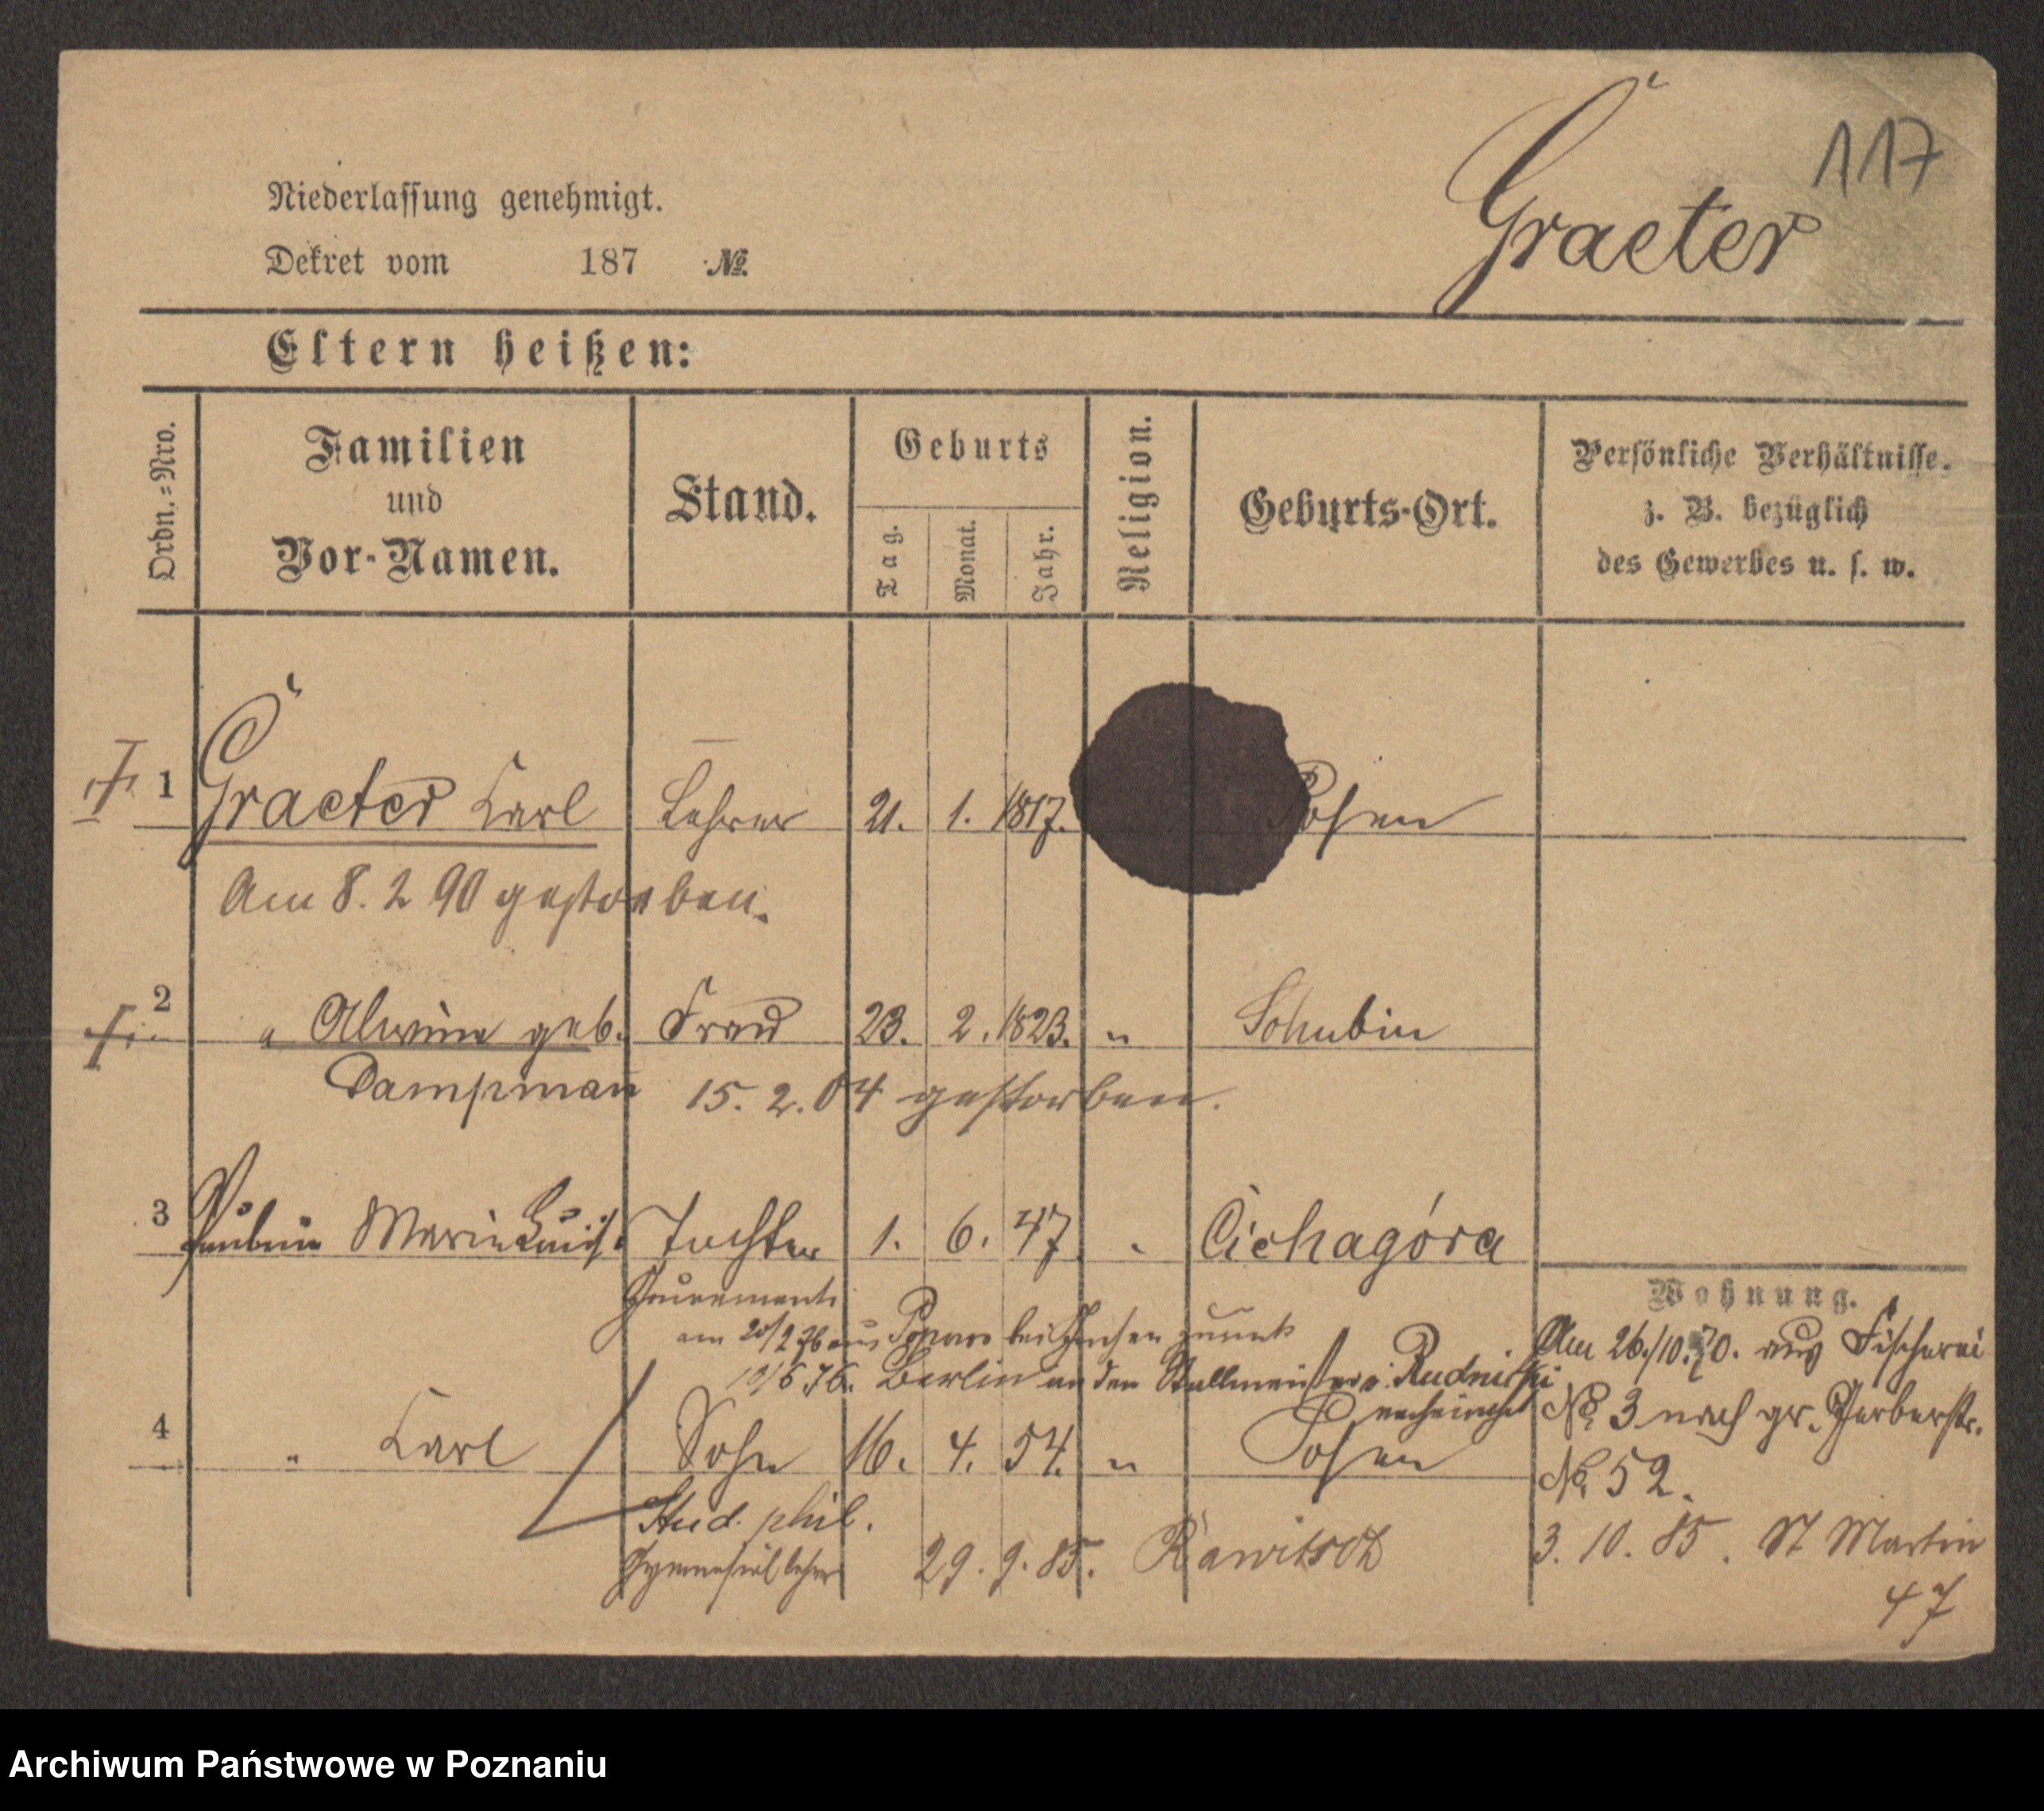 117
Graeter
Niederlassung genehmigt.
Dekret vom 187 №.
Eltern heißen:
Ordn.=Nro.
Familien und Vor-Namen.
Stand.
Geburts
Tag. Monat. Jahr.
Religion.
Geburts-Ort.
Persönliche Verhältnisse.
z. B. bezüglich
des Gewerbes u. s. w.
1 Graeter Carl Lehrer 21. 1. 1817. Posen
Am 8. 2 90 gestorben.
2 " Alwine geb. Frau 23. 2. 1823. " Schubin
Dampman̄ 15. 2. 04 gestorben.
3 Pauline Marie Luise Tochter 1. 6. 47 " Cichagóra
Gouvernante
am 20/2 76 aus bei zurück
10/6. 76. Berlin an den Stallmeister v. Rudnitzki
4 " Carl Sohn 16. 4. 54. " Posen
Stud. phil.
Gymnasiallehrer 29. 9. 85. Rawitsch
Wohnung.
Am 26./10. 70. aus Fischerei
No. 3 nach gr. Gerberstr.
No. 52.
3. 10. 85. St Martin
47
Archiwum Państwowe w Poznaniu